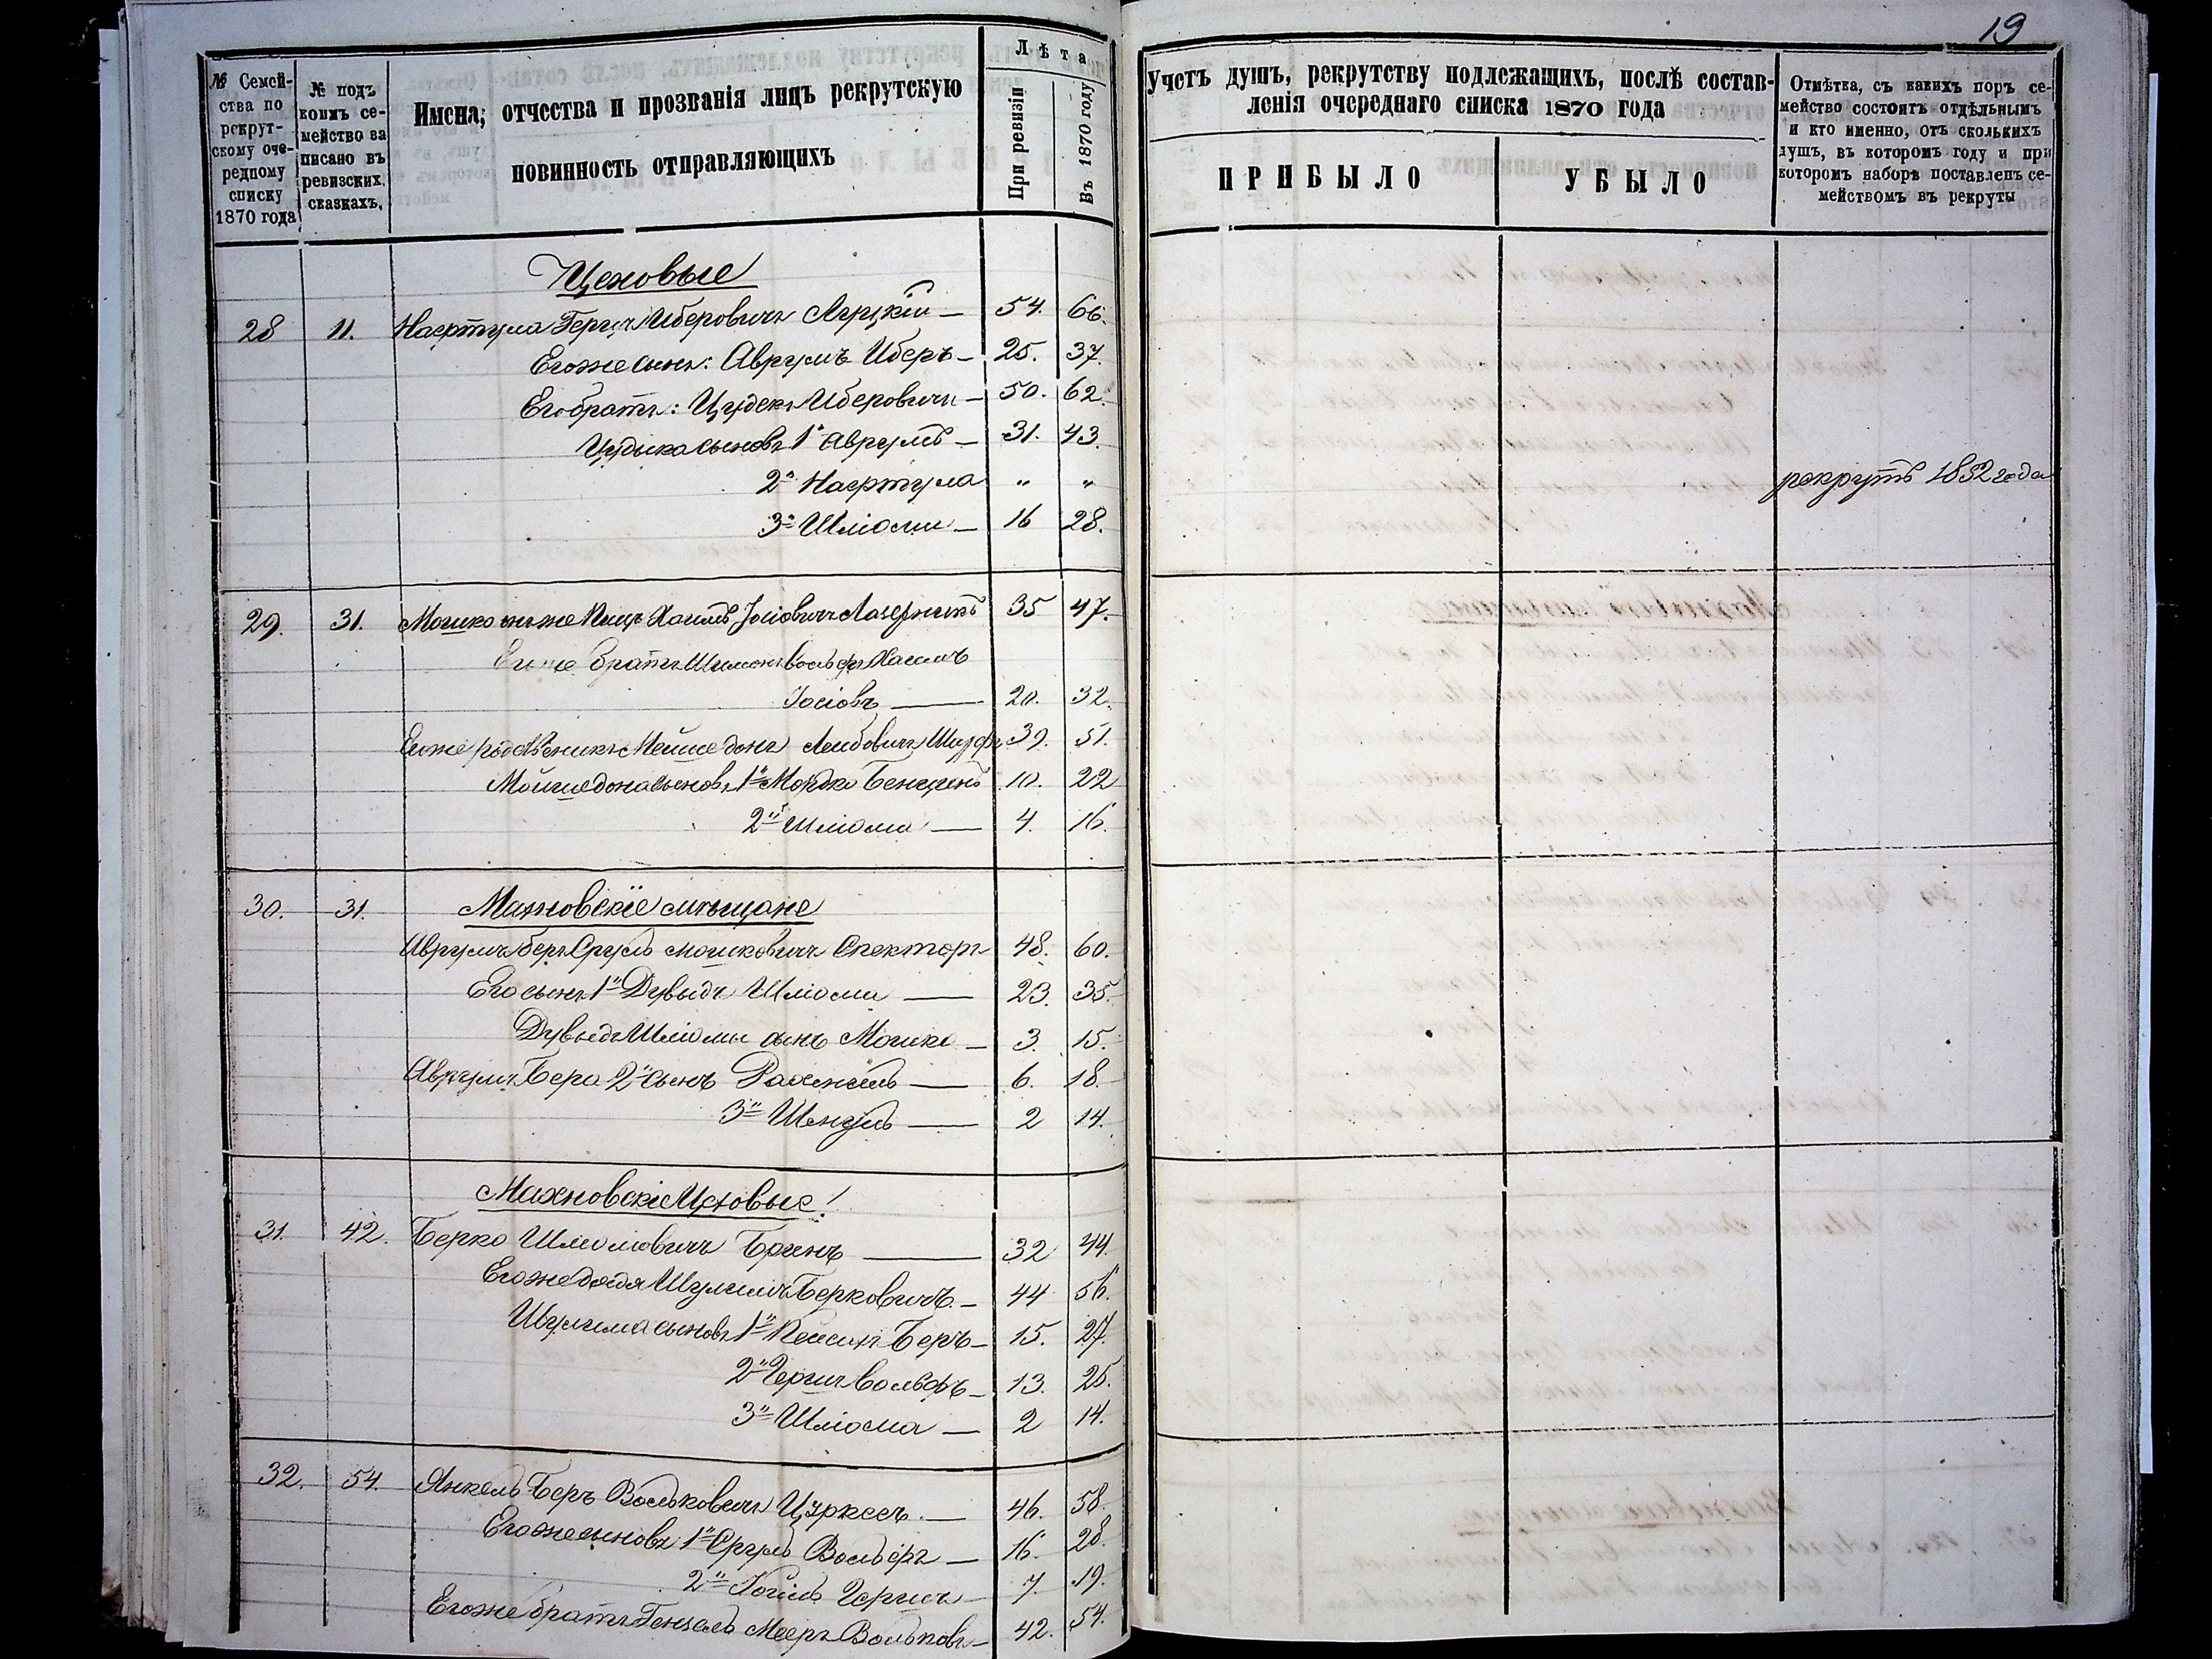 19
№ Семей-
ства по
рекрут-
скому оче-
редному
списку
1870 года
№ подъ
коимъ се-
мейство за
писано въ
ревизскихъ
сказкахъ.
Имена, отчества и прозванія лицъ рекрутскую
повинность отправляющихъ
Лѣта
При ревизіи
Въ 1870 году
Учетъ душъ, рекрутству подлежащихъ, послѣ состав-
ленія очереднаго списка 1870 года
ПРИБЫЛО
УБЫЛО
Отмѣтка, съ какихъ поръ се-
мейство состоитъ отдѣльнымъ
и кто именно, отъ сколькихъ
душъ, въ которомъ году и при
которомъ наборѣ поставленъ се-
мействомъ въ рекруты
Цеховые
28 11. Нафтула Гершъ Иберовичъ — 54. 66.
Егоже сынъ: Аврумъ Иберъ — 25. 37.
Его братъ: Цудекъ Иберовичъ — 50. 62.
Цудыка сыновья 1й Аврумъ — 31. 43.
2й Нафтула " " рекрутъ 1852 года
3й Шліома — 16 28.
29. 31. Мошко Хаимъ Іосіовичъ 35 47.
братъ Шимонъ Вольфъ Хаимъ
Іосіовъ — 20. 32.
родственникъ Мойше Лейбовичъ 39. 51.
сыновья 1й Мордко Бенционъ 10. 22
2й Шліома — 4. 16.
30. 31. Махновскіе мѣщане
Аврумъ Беръ Сруль Мошковичъ Спекторъ 48. 60.
Его сынъ 1й Дувыдъ Шліома — 23. 35.
Дувыдъ Шліомы сынъ Мошко — 3. 15.
Аврумъ Бера 2й сынъ — 6. 18.
3й — 2 14.
Махновскіе Цеховые
31. 42. Берко Шліомовичъ — 32 44.
Егоже дядя Шулимъ Берковичъ — 44 56.
Шулима сыновья 1й Пейсихъ Беръ — 15. 27.
2й Гершъ Вольфъ — 13. 25.
3й Шліома — 2 14.
32. 54. Янкель Беръ Вольковичъ — 46. 58.
Егоже сыновья 1й Сруль Вольфъ — 16. 28.
2й Гершъ — 7. 19.
Егоже братъ Мееръ Вольковъ — 42. 54.